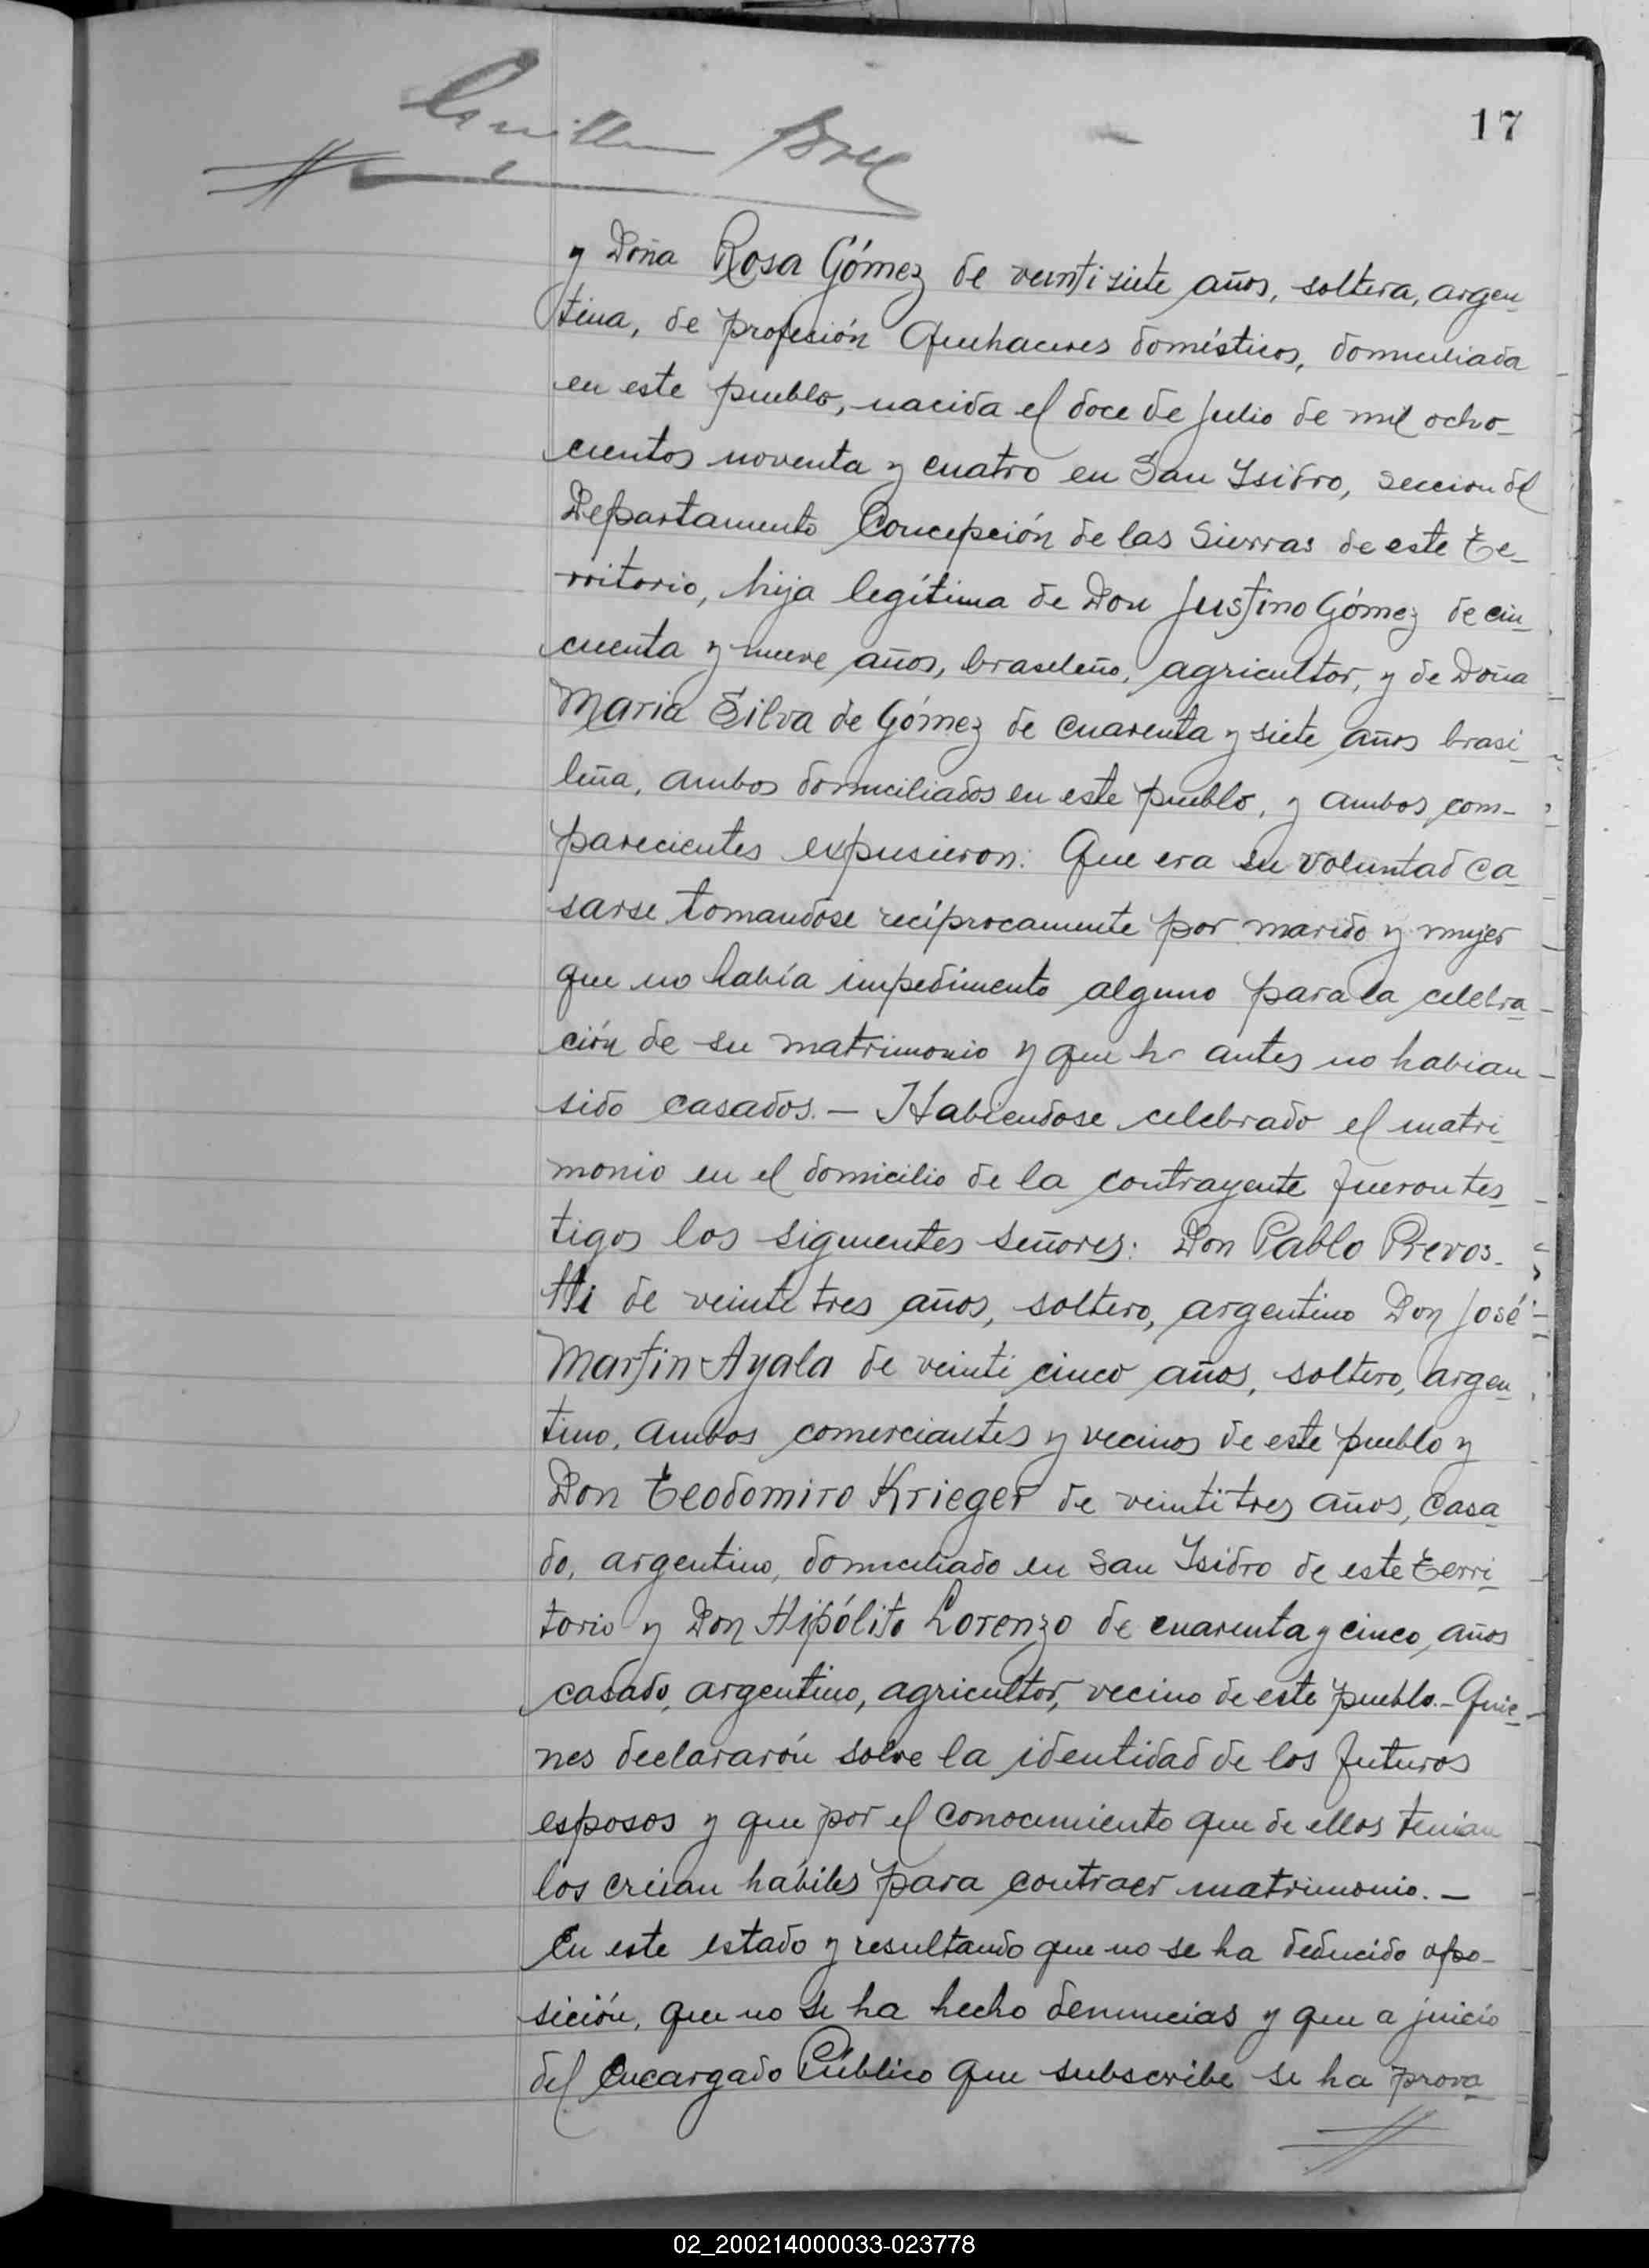 17
y Doña Rosa Gómez de veintisiete años, soltera, argen
tina, de profesión Quehaceres domésticos, domiciliada
en este pueblo, nacida el doce de julio de mil ocho-
cientos noventa y cuatro en San Isidro, seccion del
Departamento Concepción de las Sierras de este Te-
rritorio, hija legítima de Don Justino Gómez de cin
cuenta y nueve años, brasileño, agricultor, y de Doña
Maria Silva de Gómez de cuarenta y siete años brasi
leña, ambos domiciliados en este pueblo, y ambos com-
parecientes expusieron: Que era su voluntad ca
sarse tomandose recíprocamente por marido y mujer
que no había impedimento alguno para la celebra
ción de su matrimonio y que antes no habian
sido casados. — Habiendose celebrado el matri
monio en el domicilio de la contrayente fueron tes
tigos los siguientes señores: Don Pablo Prevos-
tti de veinte tres años, soltero, argentino Don José
Martin Ayala de veinti cinco años, soltero, argen
tino, ambos comerciantes y vecinos de este pueblo y
Don Teodomiro Krieger de veintitres años, casa
do, argentino, domiciliado en San Isidro de este Terri
torio y Don Hipólito Lorenzo de cuarenta y cinco años
casado, argentino, agricultor, vecino de este pueblo. - Quie
nes declararón sobre la identidad de los futuros
esposos y que por el conocimiento que de ellos tenian
los creian hábiles para contraer matrimonio. —
En este estado y resultando que no se ha deducido opo-
sición, que no se ha hecho denuncias y que a juicio
del Encargado Público que subscribe se ha prova
02_200214000033-023778